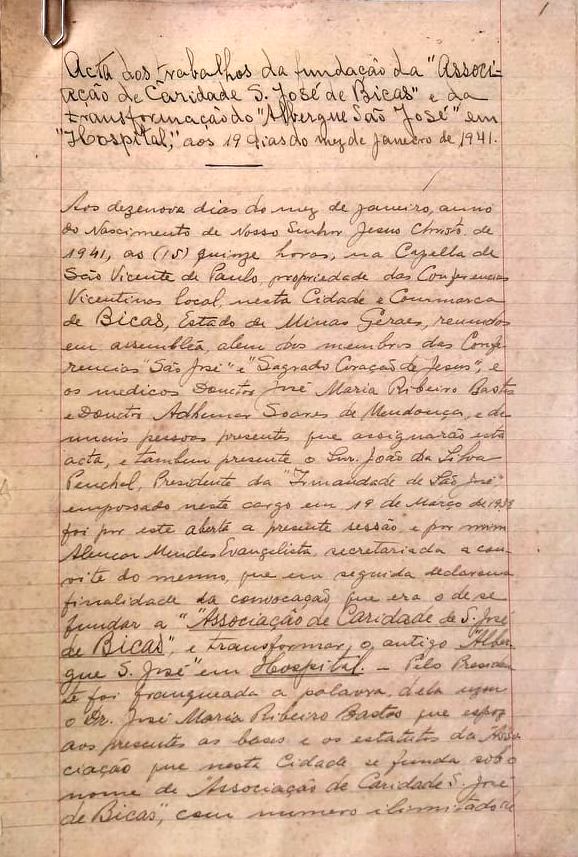 Acta dos trabalhos da fundação da "Associ-
ação de Caridade S. José de Bicas" e da
transformação do "Albergue São José" em
"Hospital," aos 19 dias do mez de Janeiro de 1941.
Aos dezenove dias do mez de Janeiro, anno
do Nascimento de Nosso Senhor Jesus Christo de
1941, as (15) quinze horas, na Capella de
São Vicente de Paulo, propriedade das Conferencias
Vicentinas local, nesta Cidade e Commarca
de Bicas, Estado de Minas Geraes, reunidos
em assembléa, alem dos membros das Confe
rencias "São José" e "Sagrado Coração de Jesus", e
os medicos Doutor José Maria Ribeiro Bastos
e Doutor Adhemar Soares de Mendonça, e de
mais pessoas presentes que assignarão esta
acta, e tambem presente o Snr. João da Silva
Penchel, Presidente da "Irmandade de São José"
empossado neste cargo em 19 de Março de 1939
foi por este aberta a presente sessão, e por mim
Alencar Mendes Evangelista, secretariada a con-
vite do mesmo, que em seguida declarou a
finalidade da convocação, que era o de se
fundar a "Associação de Caridade de S. José
de Bicas", e transformar, o antigo "Alber-
gue S. José" em Hospital. – Pelo Presiden
te foi franqueada a palavra, dela usou
o Dr. José Maria Ribeiro Bastos que expoz
aos presentes as bases e os estatutos da Asso
ciação que nesta Cidade se funda sob o
nome de "Associação de Caridade S. José
de Bicas", com numero ilimitado de